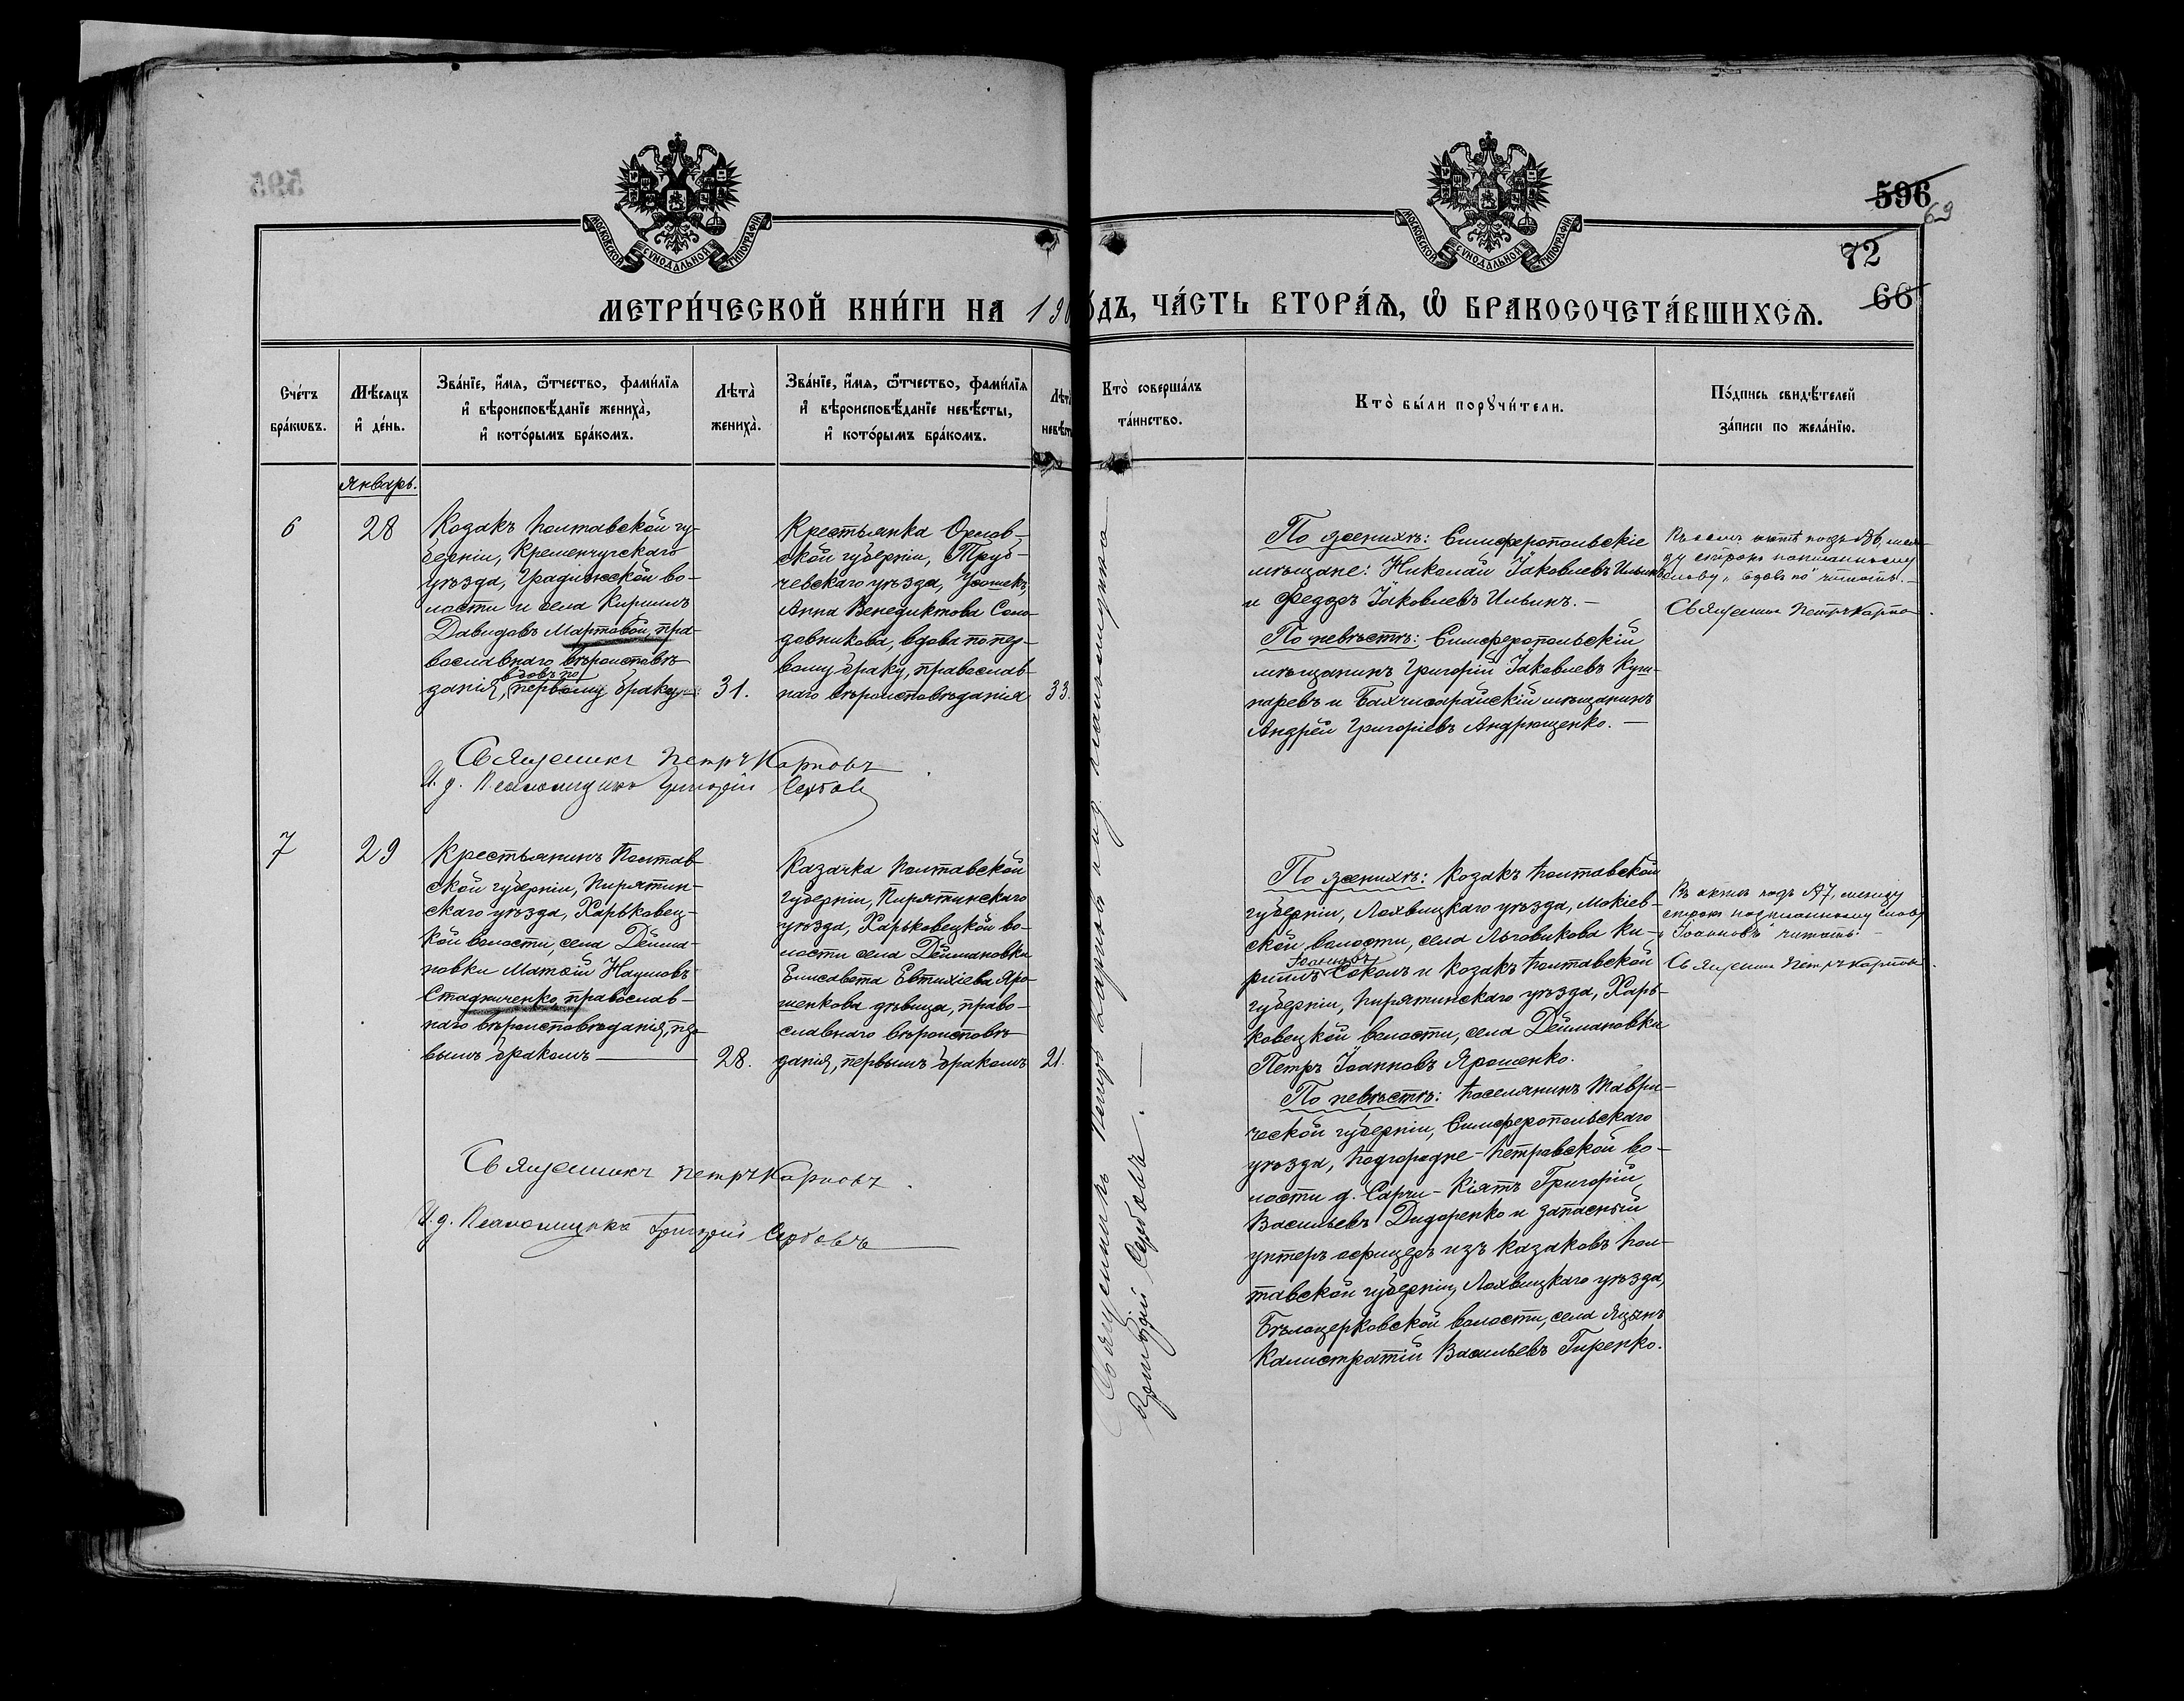 596
69
72
66
МОСКОВСКОЙ СѴНОДАЛЬНОЙ ТИПОГРАФІИ
МОСКОВСКОЙ СѴНОДАЛЬНОЙ ТИПОГРАФІИ
МЕТРИ́ЧЕСКОЙ КНИ́ГИ НА 190 ДЪ, ЧА́СТЬ ВТОРА́Ѧ, Ѡ БРАКОСОЧЕТА́ВШИХСѦ.
Сче́тъ бра́кѡвъ.
Мѣ́сѧцъ и҆ де́нь.
Зва́нїе, и҆́мѧ, ѻ҆́тчество, фами́лїѧ
и҆ вѣроисповѣ́данїе жениха̀,
и҆ кото́рымъ бра́комъ.
Лѣта̀ жениха̀.
Зва́нїе, и҆́мѧ, ѻ҆́тчество, фами́лїѧ
и҆ вѣроисповѣ́данїе невѣ́сты,
и҆ кото́рымъ бра́комъ.
Лѣта̀ невѣст
Кто̀ соверша́лъ
та́инство.
Кто̀ бы́ли порꙋчи́тели.
По́дпись свидѣ́телей
за́писи по жела́нїю.
Январь.
6
28
Козакъ Полтавской гу-
берніи, Кременчугскаго
уѣзда, Градижской во-
лости и села Кириллъ
Давидовъ Мартовой, пра-
вославнаго вѣроисповѣ-
вдовъ по
данія, первому браку
31.
Крестьянка Орлов-
ской губерніи, Труб-
чевскаго уѣзда,
Анна Венедиктова Соло-
довникова, вдова по пер-
вому браку, православ-
наго вѣроисповѣданія
33.
По женихѣ: Симферопольскіе
мѣщане: Николай Іаковлевъ Ильинъ
и Федоръ Іаковлевъ Ильинъ. —
По невѣстѣ: Симферопольскій
мѣщанинъ Григорій Іаковлевъ Куш-
наревъ и Бахчисарайскій мѣщанинъ
Андрей Григоріевъ Андрющенко. —
Въ семъ актѣ подъ №6, меж-
ду строкъ написанному
слову „вдовъ по" читать. —
Священникъ Петръ Карпо
Священникъ Петръ Карповъ
И. д. Псаломщика Григорій Сербовъ
7
29
Крестьянинъ Полтав-
ской губерніи, Пирятин-
скаго уѣзда, Харьковец-
кой волости, села Дейма-
новки Матѳій Наумовъ
Стадниченко, православ-
наго вѣроисповѣданія, пер-
вымъ бракомъ
28.
Казачка Полтавской
губерніи, Пирятинскаго
уѣзда, Харьковецкой во-
лости села Деймановки
Елисавета Евтихіева Яро-
шенкова дѣвица, право-
славнаго вѣроисповѣ-
данія, первымъ бракомъ
21.
Священникъ Петръ Карповъ и и.д. псаломщика
Григорій Сербовъ. —
По женихѣ: Козакъ Полтавской
губерніи, Лохвицкаго уѣзда, Мокіев-
ской волости, села Льговикова Ки-
Іоанновъ
риллъ Соколъ и козакъ Полтавской
губерніи, Пирятинскаго уѣзда, Харь-
ковецкой волости, села Деймановки
Петръ Іоанновъ Ярошенко.
По невѣстѣ: Поселянинъ Таври-
ческой губерніи, Симферопольскаго
уѣзда, Подгородне-Петровской во-
лости д. Сарчи-Кіятъ Григорій
Васильевъ Дидоренко и запасный
унтеръ офицеръ изъ казаковъ Пол-
тавской губерніи, Лохвицкаго уѣзда,
Бѣлоцерковской волости, села Яцынъ
Калистратій Васильевъ Гиренко.
Въ актѣ подъ №7, между
строкъ надписанному слову
„Іоанновъ" читать. —
Священникъ Петръ Карпов
Священникъ Петръ Карповъ.
И. д. Псаломщика Григорій Сербовъ